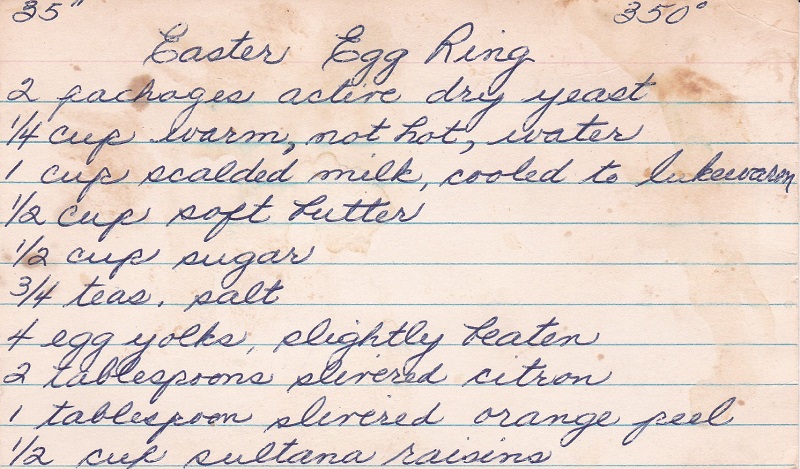 35" 350°
Easter Egg Ring
2 packages active dry yeast
1/4 cup warm, not hot, water
1 cup scalded milk, cooled to lukewarm
1/2 cup soft butter
1/2 cup sugar
3/4 teas. salt
4 egg yolks, slightly beaten
2 tablespoons slivered citron
1 tablespoon slivered orange peel
1/2 cup sultana raisins